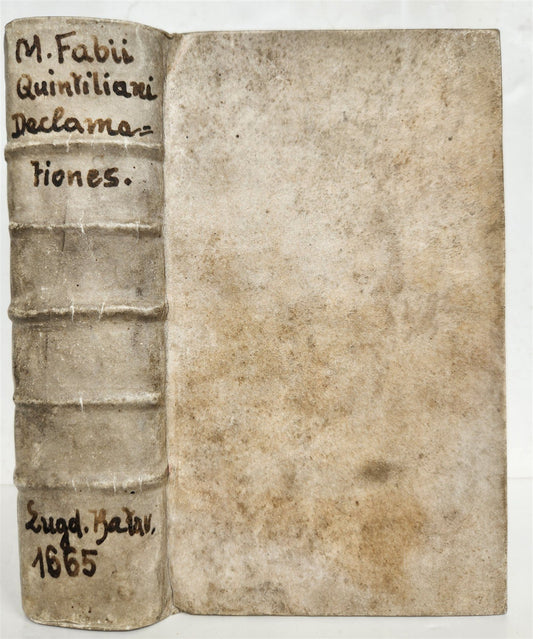 M. Fabii
Quintiliani
Declama=
tiones.
Lugd. Batav.
1665